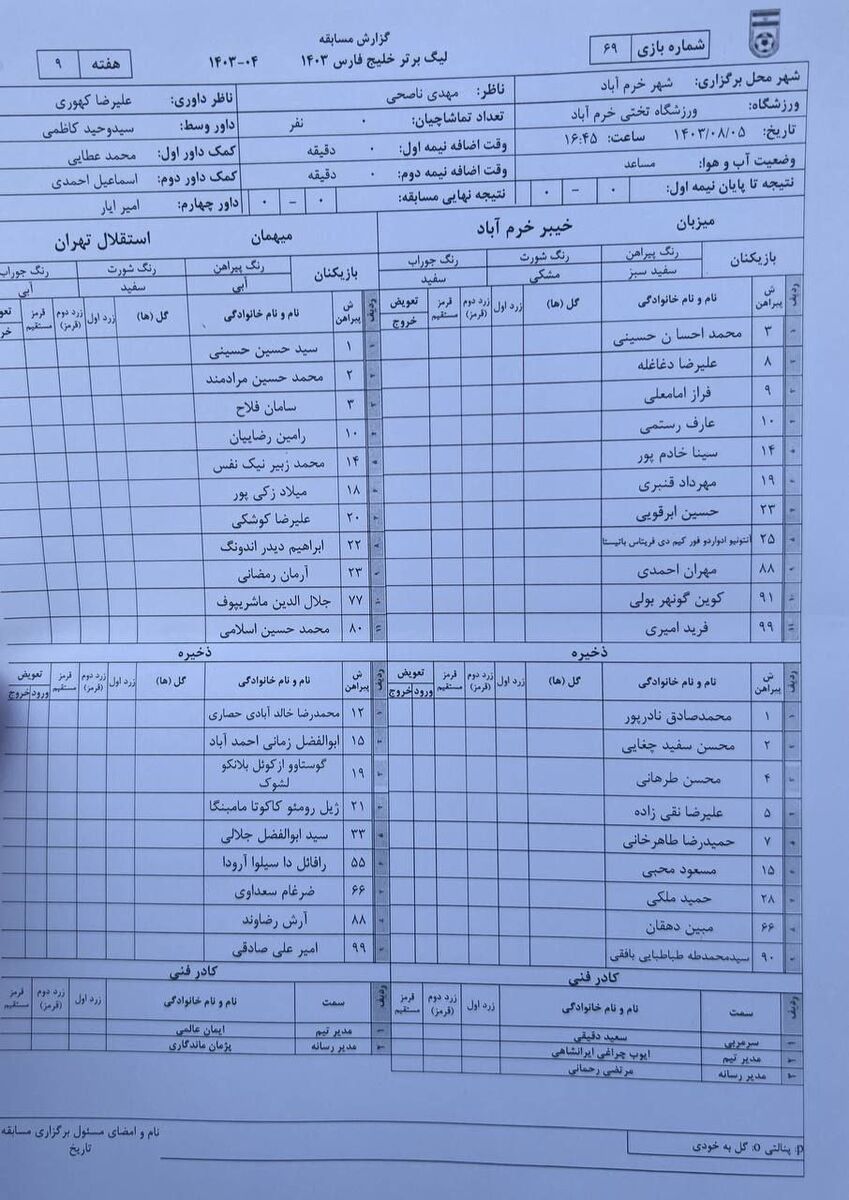 گزارش مسابقه
شماره بازی ۶۹
لیگ برتر خلیج فارس ۱۴۰۳ ۱۴۰۳-۰۴
هفته ۹
شهر محل برگزاری: شهر خرم آباد
ناظر: مهدی ناصحی
ناظر داوری: علیرضا کهوری
ورزشگاه: ورزشگاه تختی خرم آباد
تعداد تماشاچیان: ۰ نفر
داور وسط: سیدوحید کاظمی
تاریخ: ۱۴۰۳/۰۸/۰۵ ساعت: ۱۶:۴۵
وقت اضافه نیمه اول: ۰ دقیقه
کمک داور اول: محمد عطایی
وضعیت آب و هوا: مساعد
وقت اضافه نیمه دوم: ۰ دقیقه
کمک داور دوم: اسماعیل احمدی
نتیجه تا پایان نیمه اول: ۰ – ۰
نتیجه نهایی مسابقه: ۰ – ۰
داور چهارم: امیر ایار
میزبان خیبر خرم آباد
بازیکنان رنگ پیراهن رنگ شورت رنگ جوراب
سفید سبز مشکی سفید
ردیف ش پیراهن نام و نام خانوادگی گل (ها) زرد اول زرد دوم (قرمز) قرمز مستقیم تعویض خروج
۱ ۳ محمد احسا ن حسینی
۲ ۸ علیرضا دغاغله
۳ ۹ فراز امامعلی
۴ ۱۰ عارف رستمی
۵ ۱۴ سینا خادم پور
۶ ۱۹ مهرداد قنبری
۷ ۲۳ حسین ابرقویی
۸ ۲۵ آنتونیو ادواردو فور کیم دی فریتاس باتیستا
۹ ۸۸ مهران احمدی
۱۰ ۹۱ کوین گونهر بولی
۱۱ ۹۹ فرید امیری
ذخیره
ردیف ش پیراهن نام و نام خانوادگی گل (ها) زرد اول زرد دوم (قرمز) قرمز مستقیم تعویض ورود خروج
۱ ۱ محمدصادق نادرپور
۲ ۲ محسن سفید چغایی
۳ ۴ محسن طرهانی
۴ ۵ علیرضا نقی زاده
۵ ۷ حمیدرضا طاهرخانی
۶ ۱۵ مسعود محبی
۷ ۲۸ حمید ملکی
۸ ۶۶ مبین دهقان
۹ ۹۰ سیدمحمدطه طباطبایی بافقی
کادر فنی
ردیف سمت نام و نام خانوادگی زرد اول زرد دوم (قرمز) قرمز مستقیم
۱ سرمربی سعید دقیقی
۲ مدیر تیم ایوب چراغی ایرانشاهی
۳ مدیر رسانه مرتضی رحمانی
میهمان استقلال تهران
بازیکنان رنگ پیراهن رنگ شورت رنگ جوراب
آبی سفید آبی
ردیف ش پیراهن نام و نام خانوادگی گل (ها) زرد اول زرد دوم (قرمز) قرمز مستقیم خروج
۱ ۱ سید حسین حسینی
۲ ۲ محمد حسین مرادمند
۳ ۳ سامان فلاح
۴ ۱۰ رامین رضاییان
۵ ۱۴ محمد زبیر نیک نفس
۶ ۱۸ میلاد زکی پور
۷ ۲۰ علیرضا کوشکی
۸ ۲۲ ابراهیم دیدر اندونگ
۹ ۲۳ آرمان رمضانی
۱۰ ۷۷ جلال الدین ماشریپوف
۱۱ ۸۰ محمد حسین اسلامی
ذخیره
ردیف ش پیراهن نام و نام خانوادگی گل (ها) زرد اول زرد دوم (قرمز) قرمز مستقیم تعویض ورود خروج
۱ ۱۲ محمدرضا خالد آبادی حصاری
۲ ۱۵ ابوالفضل زمانی احمد آباد
۳ ۱۹ گوستاوو ازکوئل بلانکو
لشوک
۴ ۲۱ ژیل رومئو کاکوتا مامبنگا
۵ ۳۳ سید ابوالفضل جلالی
۶ ۵۵ رافائل دا سیلوا آرودا
۷ ۶۶ ضرغام سعداوی
۸ ۸۸ آرش رضاوند
۹ ۹۹ امیر علی صادقی
کادر فنی
ردیف سمت نام و نام خانوادگی زرد اول زرد دوم (قرمز) قرمز مستقیم
۱ مدیر تیم ایمان عالمی
۲ مدیر رسانه پژمان ماندگاری
p: پنالتی o: گل به خودی
نام و امضای مسئول برگزاری مسابقه
تاریخ